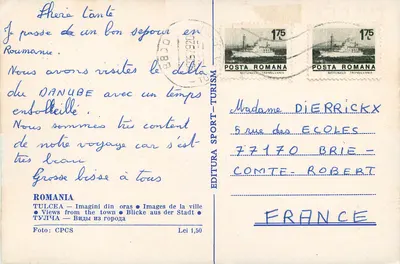 Chère tante
Je passe de un bon sejour en
Roumanie.
Nous avons visités le delta
du DANUBE avec un temps
ensolleillé.
Nous sommes très content
de notre voyage car s'est
très beau
Grosse bisse à tous
ROMANIA
TULCEA — Imagini din oras • Images de la ville
• Views from the town • Blicke aus der Stadt •
ТУЛЧА — Виды из города
Foto: CPCS Lei 1,50
EDITURA SPORT-TURISM
1,75
POSTA ROMANA
1,75
POSTA ROMANA
Madame DIERRICKX
5 rue des ECOLES
77170 BRIE-
COMTE-ROBERT
FRANCE